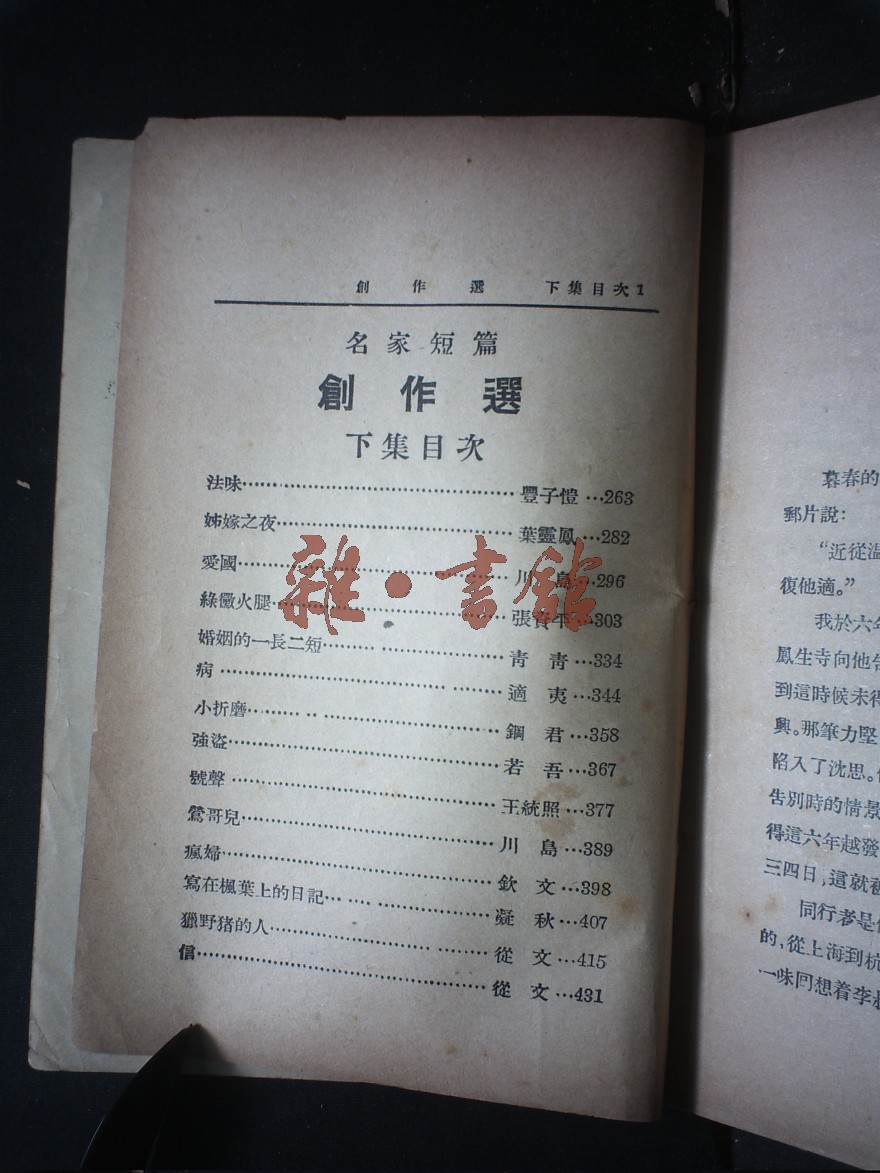 創作選 下集目次1
名家短篇
創作選
下集目次
法味……豐子愷…263
姊嫁之夜……葉靈鳳…282
愛國……川島…296
綠黴火腿……張資平…303
婚姻的一長二短……青青…334
病……適夷…344
小折磨……鋼君…358
強盜……若吾…367
號聲……王統照…377
鶯哥兒……川島…389
瘋婦……欽文…398
寫在楓葉上的日記……凝秋…407
獵野猪的人……從文…415
信……從文…431
雜·書館
暮春的
郵片說:
“近從温
復他適。”
我於六年
鳳生寺向他告
到這時候未得
興。那筆力堅
陷入了沈思。
告別時的情景
得這六年越發
三四日,這就被
同行者是
的,從上海到杭
一味回想着李叔